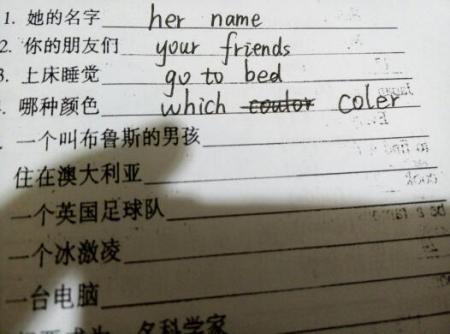 1. 她的名字 her name
2. 你的朋友们 your friends
3. 上床睡觉 go to bed
哪种颜色 which coulor coler
一个叫布鲁斯的男孩
住在澳大利亚
一个英国足球队
一个冰激凌
一台电脑
名科学家